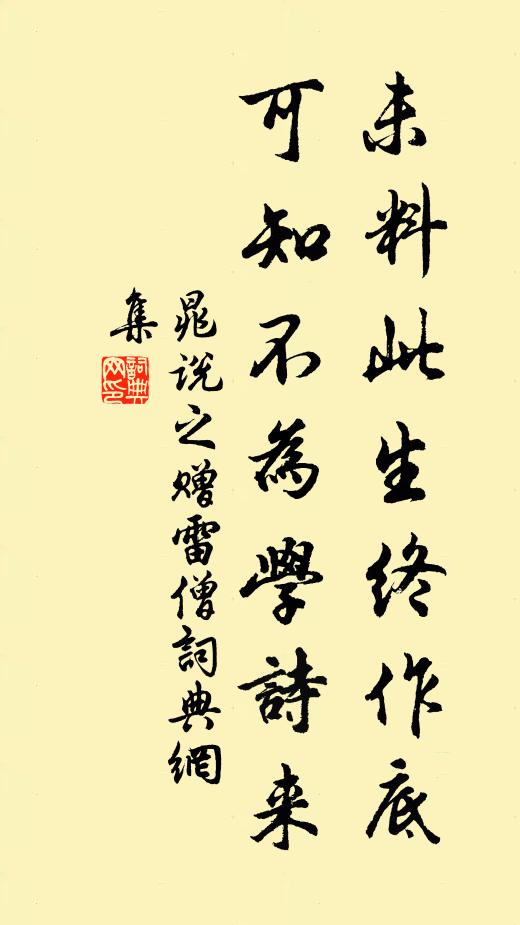 未料此生终作底
可知不為學詩来
晁说之赠雷僧詞典網
集
詞典
网印